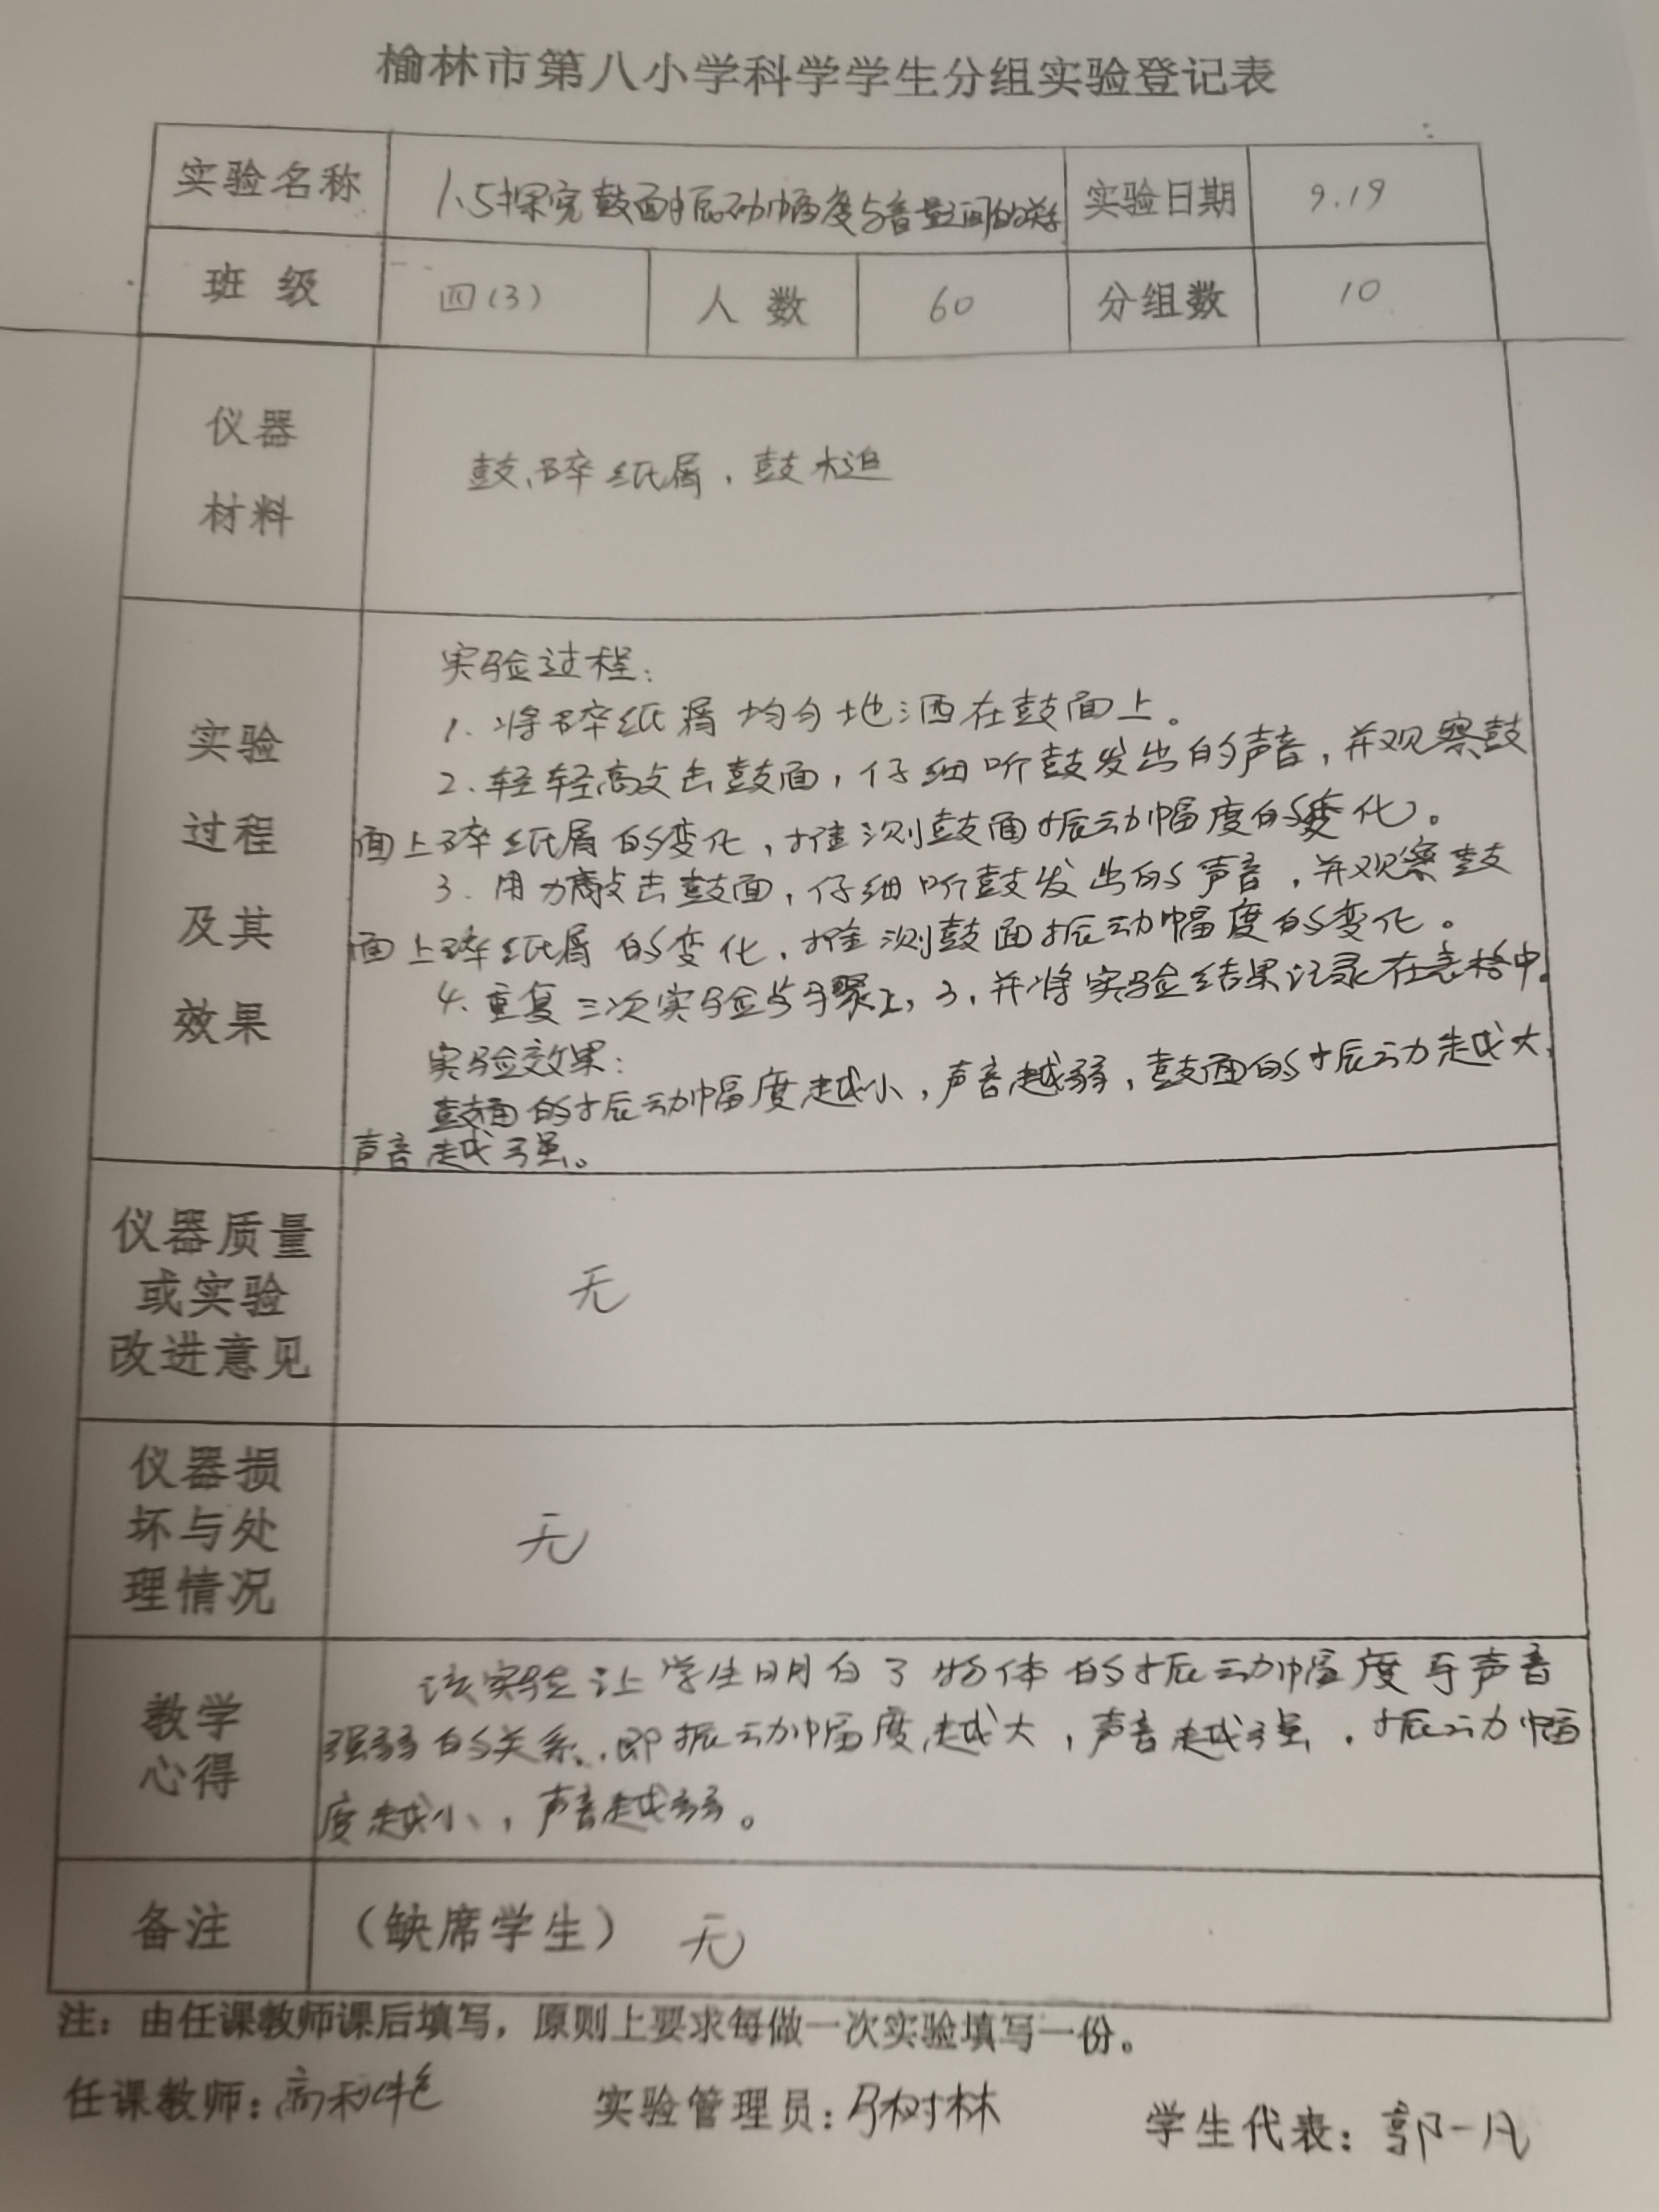 榆林市第八小学科学学生分组实验登记表
实验名称 1.5探究鼓面振动幅度与音量之间的关系 实验日期 9.19
班 级 四(3) 人 数 60 分组数 10
仪器
材料
鼓、碎纸屑，鼓槌
实验
过程
及其
效果
实验过程：
1. 将碎纸屑均匀地洒在鼓面上。
2. 轻轻敲击鼓面，仔细听鼓发出的声音，并观察鼓
面上碎纸屑的变化，推测鼓面振动幅度的变化。
3. 用力敲击鼓面，仔细听鼓发出的声音，并观察鼓
面上碎纸屑的变化，推测鼓面振动幅度的变化。
4. 重复三次实验步骤2，3，并将实验结果记录在表格中。
实验效果：
鼓面的振动幅度越小，声音越弱，鼓面的振动越大，
声音越强。
仪器质量
或实验
改进意见
无
仪器损
坏与处
理情况
无
教学
心得
该实验让学生明白了物体的振动幅度与声音
强弱的关系，即振动幅度越大，声音越强，振动幅
度越小，声音越弱。
备注 （缺席学生） 无
注：由任课教师课后填写，原则上要求每做一次实验填写一份。
任课教师：高利艳 实验管理员：树林 学生代表：郭一凡